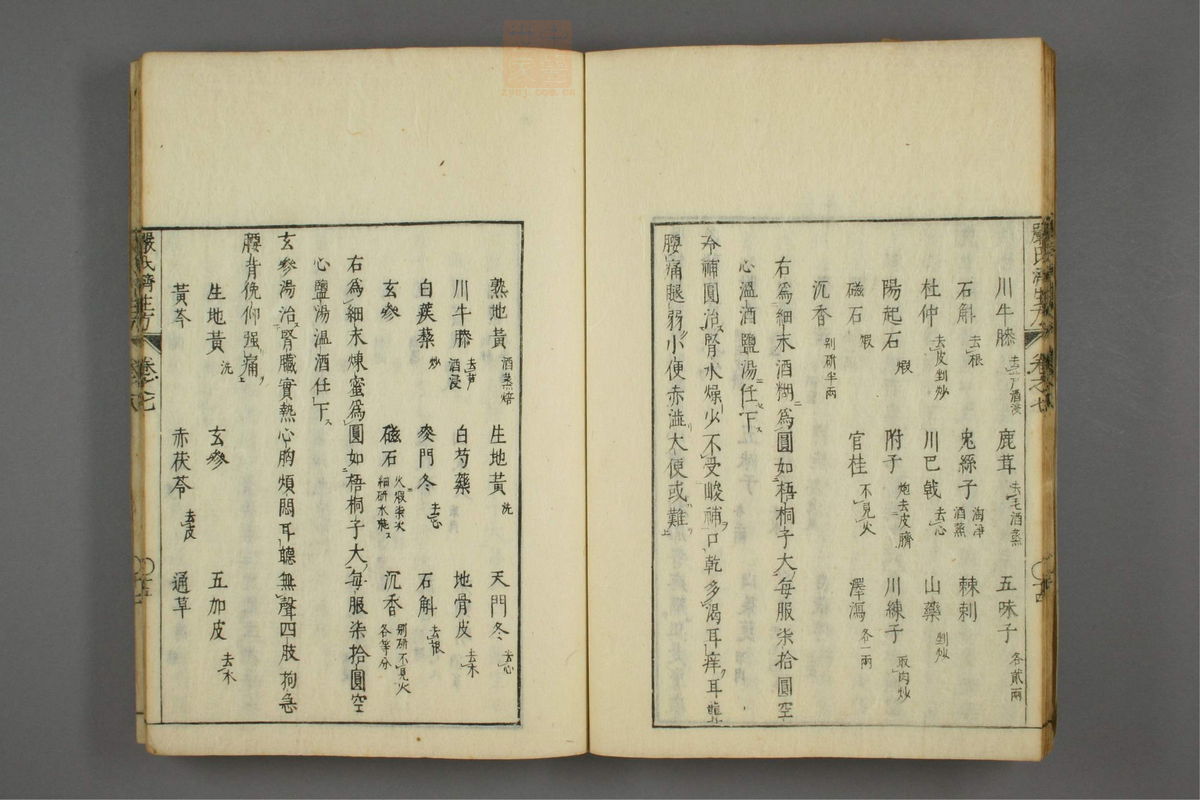 川牛膝 去芦酒浸 鹿茸 去毛酒蒸 五味子 各貳兩
石斛 去根 兔絲子 淘净酒蒸 棘刺
杜仲 去皮剉炒 川巴戟 去心 山藥 剉炒
陽起石 煆 附子 炮去皮臍 川練子 取肉炒
磁石 煆 官桂 不見火 澤瀉 各一兩
沉香 别研半兩
右爲細末酒糊爲圓如梧桐子大每服柒拾圓空
心溫酒鹽湯任下
冷補圓治腎水燥少不受峻補口乾多渴耳痒耳聾
腰痛腿弱小便赤澁大便或難
熟地黃 酒蒸焙 生地黃 洗 天門冬 去心
川牛膝 去芦酒浸 白芍藥 地骨皮 去木
白蒺藜 炒 麥門冬 去心 石斛 去根
玄參 磁石 火煆柒次細研水飛 沉香 别研不見火各等分
右爲細末煉蜜爲圓如梧桐子大每服柒拾圓空
心鹽湯温酒任下
玄參湯治腎臟實熱心胸煩悶耳聽無聲四肢拘急
腰背俛仰强痛
生地黃 洗 玄參 五加皮 去木
黃芩 赤茯苓 去皮 通草
嚴氏濟生方 卷之七